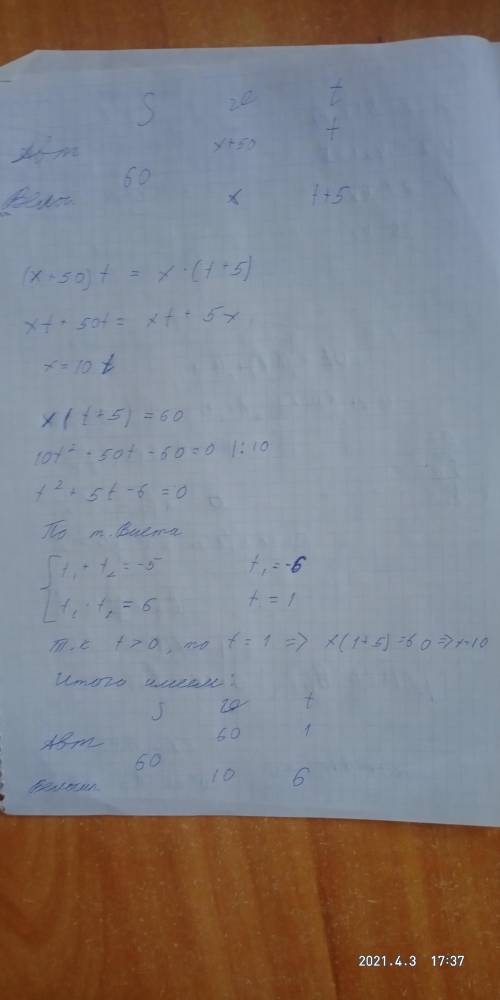 S v t
Авт x+50 t
60
Вело x t+5
(x+50)t = x·(t+5)
xt+50t = xt+5x
x=10t
x(t+5)=60
10t²+50t-60=0 |:10
t²+5t-6=0
По т. Виета
t₁+t₂=-5 t₁=-6
t₁·t₂=6 t=1
т.к t>0, то t=1 => x(1+5)=60=>x=10
Итого имеем:
S v t
Авт 60 1
60
Велосип 10 6
2021.4.3 17:37